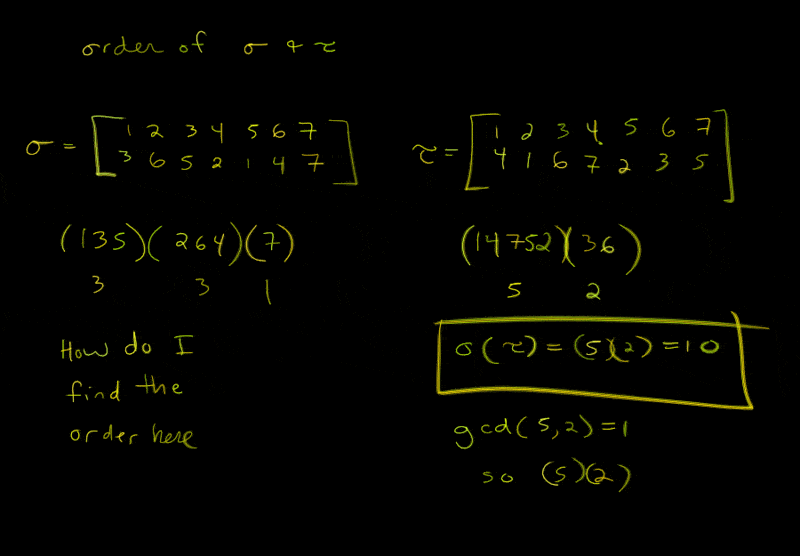 order of σ & τ
σ = [ 1 2 3 4 5 6 7
3 6 5 2 1 4 7 ]
τ = [ 1 2 3 4 5 6 7
4 1 6 7 2 3 5 ]
(135)(264)(7)
3 3 1
How do I
find the
order here
(14752)(36)
5 2
o(τ) = (5)(2) = 10
gcd(5,2) = 1
so (5)(2)